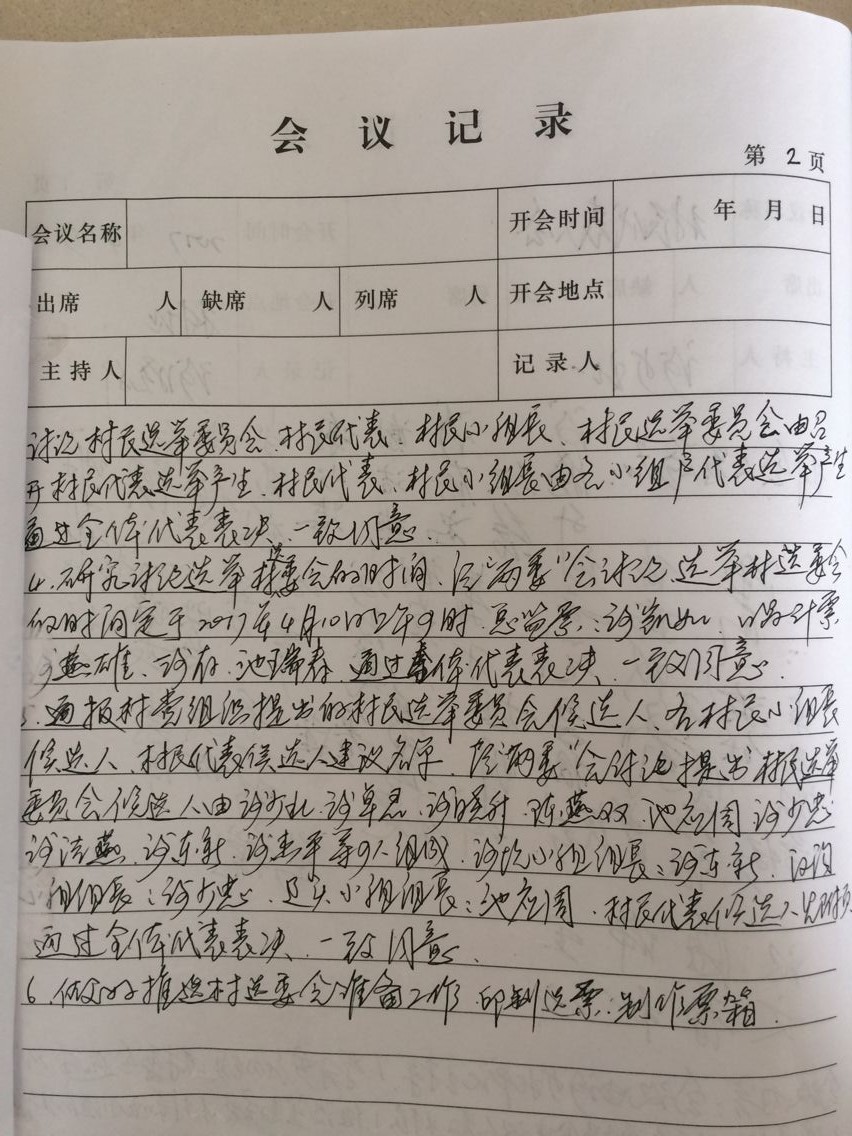 会议记录
第 2 页
会议名称 开会时间 年 月 日
出席 人 缺席 人 列席 人 开会地点
主持人 记录人
讨论村民选举委员会、村民代表、村民小组长、村民选举委员会由召
开村民代表选举产生、村民代表、村民小组长由各小组户代表选举产生
通过全体代表表决、一致同意。
4、研究讨论选举村选委会的时间、经"两委"会讨论、选举村选委会
的时间定于2017年4月10日上午9时、总监票:许凯如、以及计票
燕雄、许存、池瑞春、通过全体代表表决、一致同意。
5、通报村党组织提出的村民选举委员会候选人、各村民小组长
候选人、村民代表候选人建议名单、经"两委"会讨论提出村民选举
委员会候选人由许少北、许单君、许晓升、陈燕双、池应周、许少忠
许洁燕、许东新、许志平等9人组成、许坑小组组长:许东新、
组组长:许少忠、小组组长:池应周、村民代表候选人
通过全体代表表决、一致同意。
6、做好推选村选委会准备工作、印制选票、制作票箱。